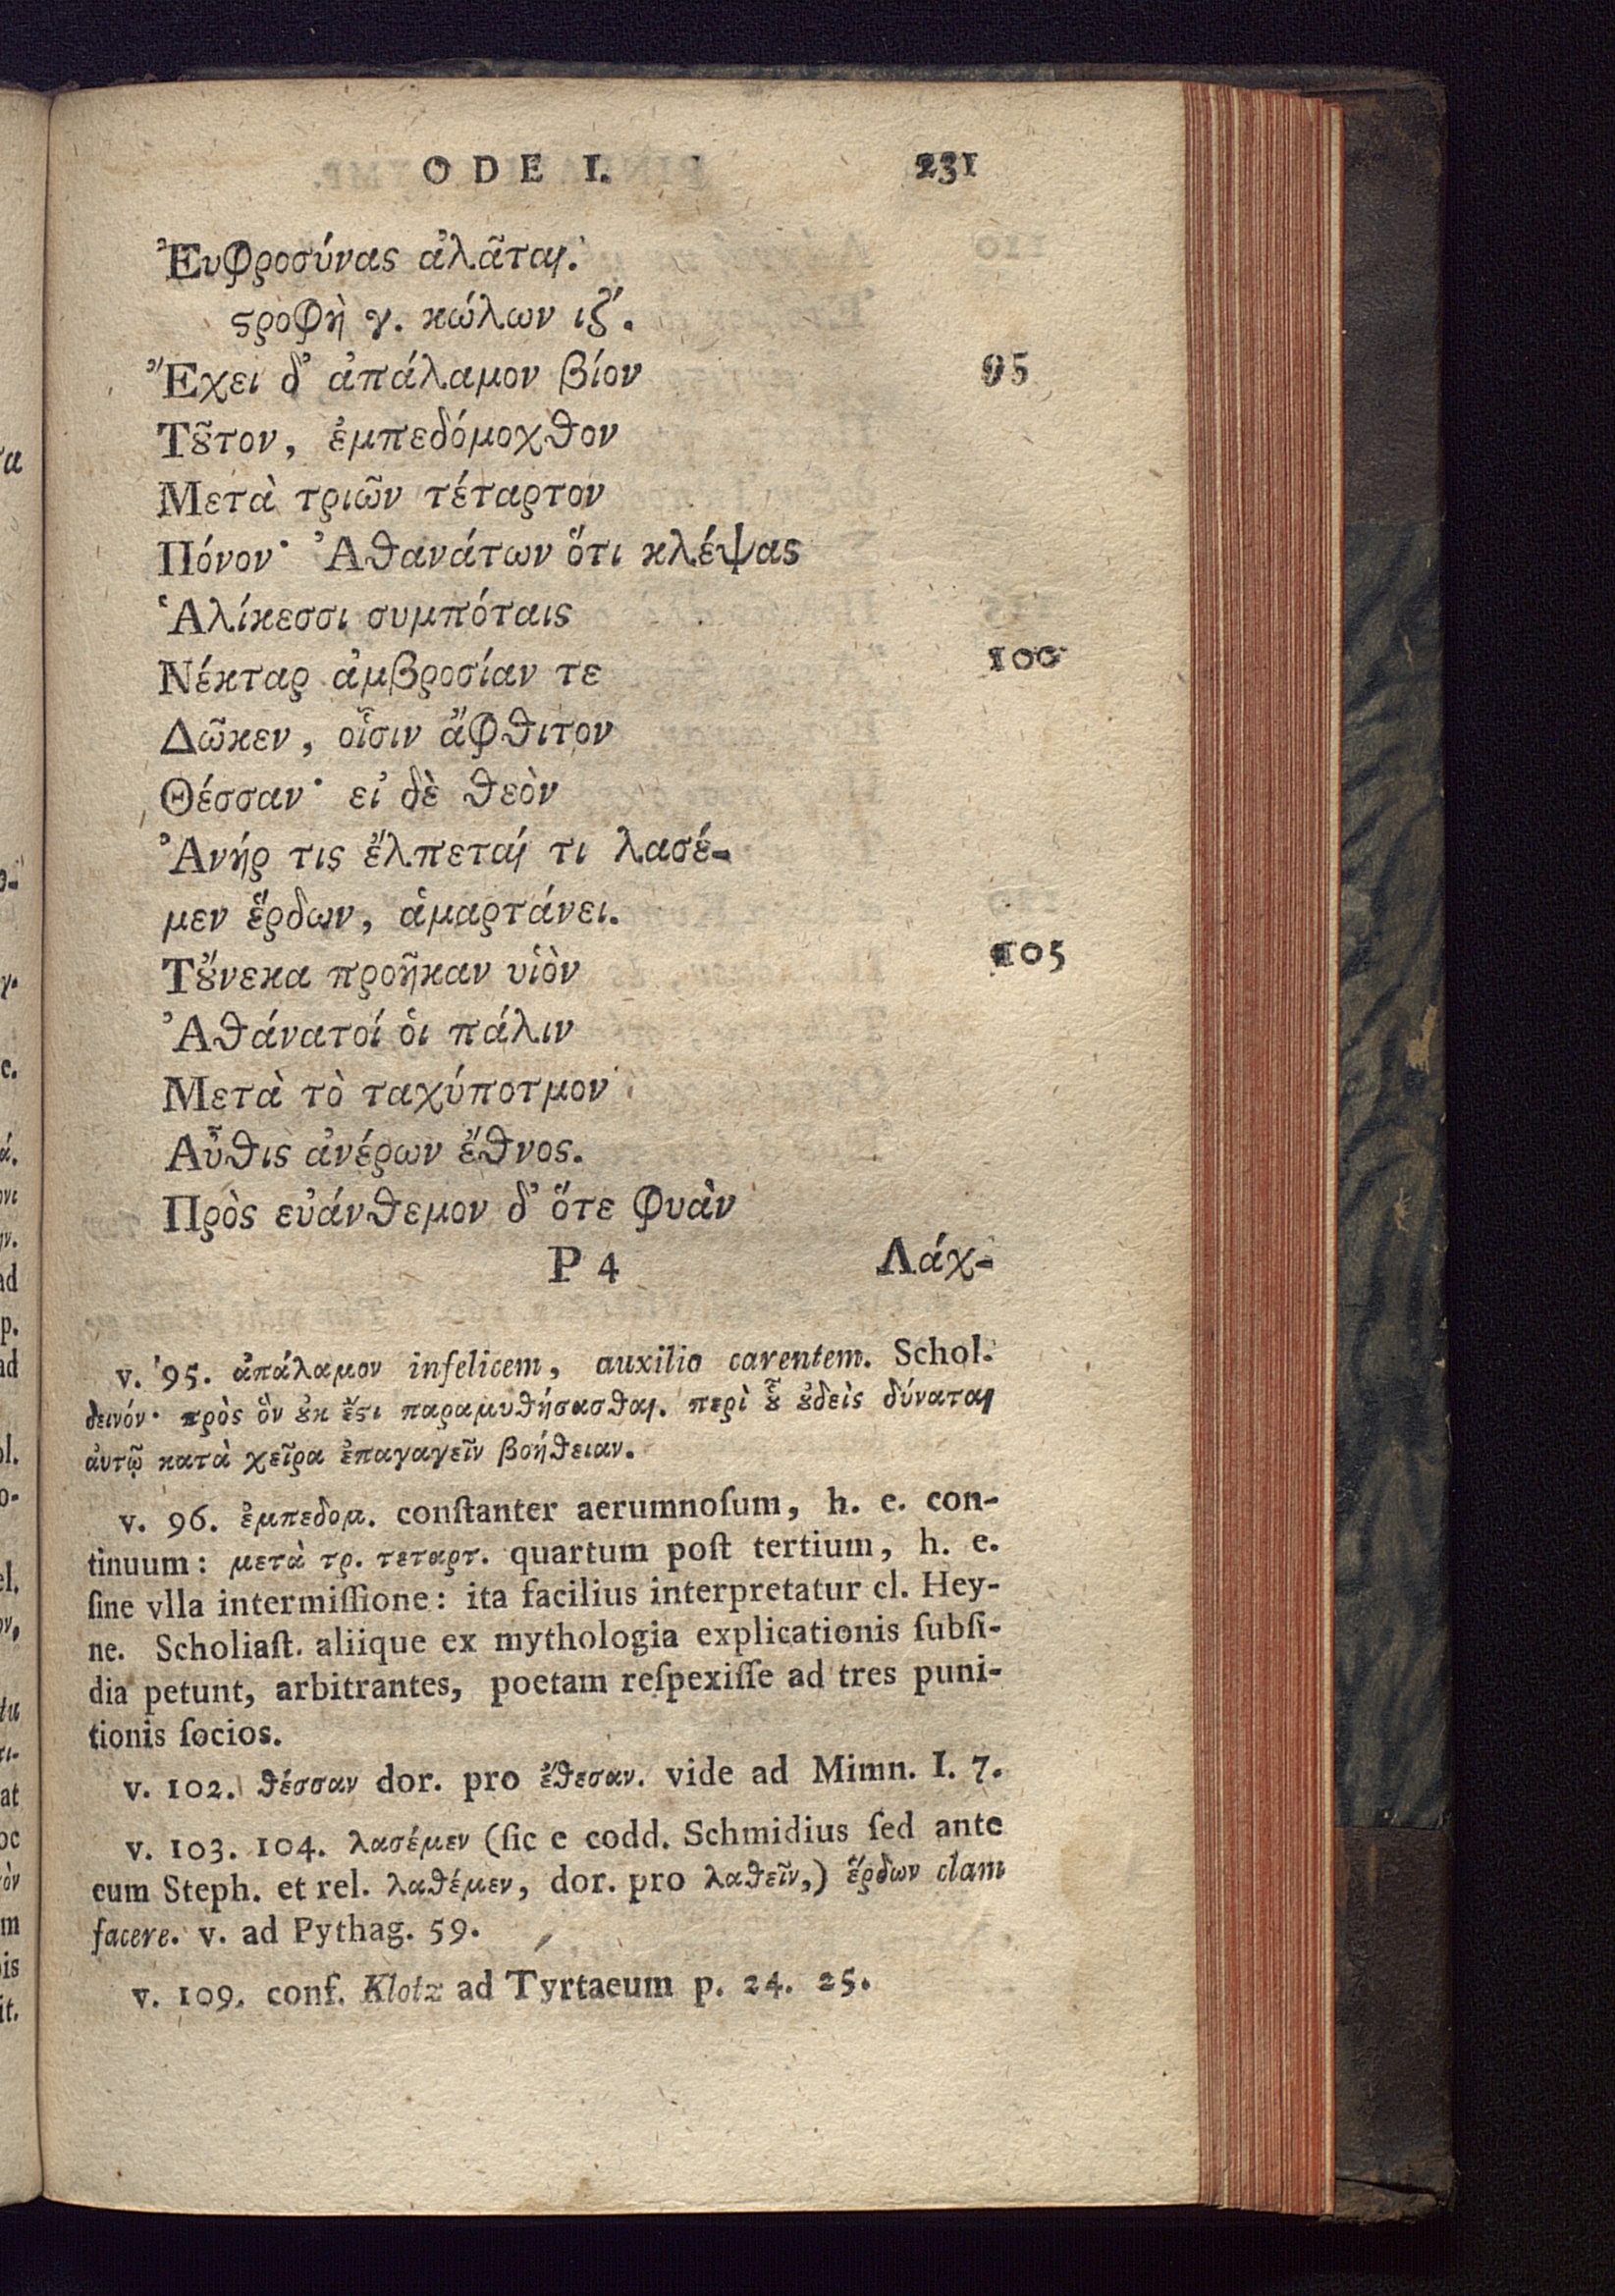 ODE I. 231
Ἐυφροσύνας ἀλᾶται.
ϛροφὴ γ. κώλων ιζ΄.
Ἔχει δ᾽ ἀπάλαμον βίον 95
Τȣ͂τον, ἐμπεδόμοχθον
Μετὰ τριῶν τέταρτον
Πόνον· Ἀθανάτων ὅτι κλέψας
Ἁλίκεσσι συμπόταις
Νέκταρ ἀμβροσίαν τε 100
Δῶκεν, οἷσιν ἄφθιτον
Θέσσαν· εἰ δὲ θεὸν
Ἀνήρ τις ἔλπεταί τι λασέ-
μεν ἔρδων, ἁμαρτάνει.
Τȣ̓́νεκα προῆκαν υἱὸν 105
Ἀθάνατοί ὁι πάλιν
Μετὰ τὸ ταχύποτμον
Αὖθις ἀνέρων ἔθνος.
Πρὸς εὐάνθεμον δ᾽ ὅτε φυὰν
P 4 Λάχ-
v. 95. ἀπάλαμον infelicem, auxilio carentem. Schol.
δεινόν· πρὸς ὃν ȣ̓κ ἔϛι παραμυθήσασθαι. περὶ ȣ̔͂ ȣ̓δεὶς δύναται
ἀυτῷ κατὰ χεῖρα ἐπαγαγεῖν βοήθειαν.
v. 96. ἐμπεδομ. conſtanter aerumnoſum, h. e. con-
tinuum: μετὰ τρ. τεταρτ. quartum poſt tertium, h. e.
ſine vlla intermiſſione: ita facilius interpretatur cl. Hey-
ne. Scholiaſt. aliique ex mythologia explicationis ſubſi-
dia petunt, arbitrantes, poetam reſpexiſſe ad tres puni-
tionis ſocios.
v. 102. θέσσαν dor. pro ἔθεσαν. vide ad Mimn. I. 7.
v. 103. 104. λασέμεν (ſic e codd. Schmidius ſed ante
eum Steph. et rel. λαθέμεν, dor. pro λαθεῖν,) ἔρδων clam
facere. v. ad Pythag. 59.
v. 109. conf. Klotz ad Tyrtaeum p. 24. 25.